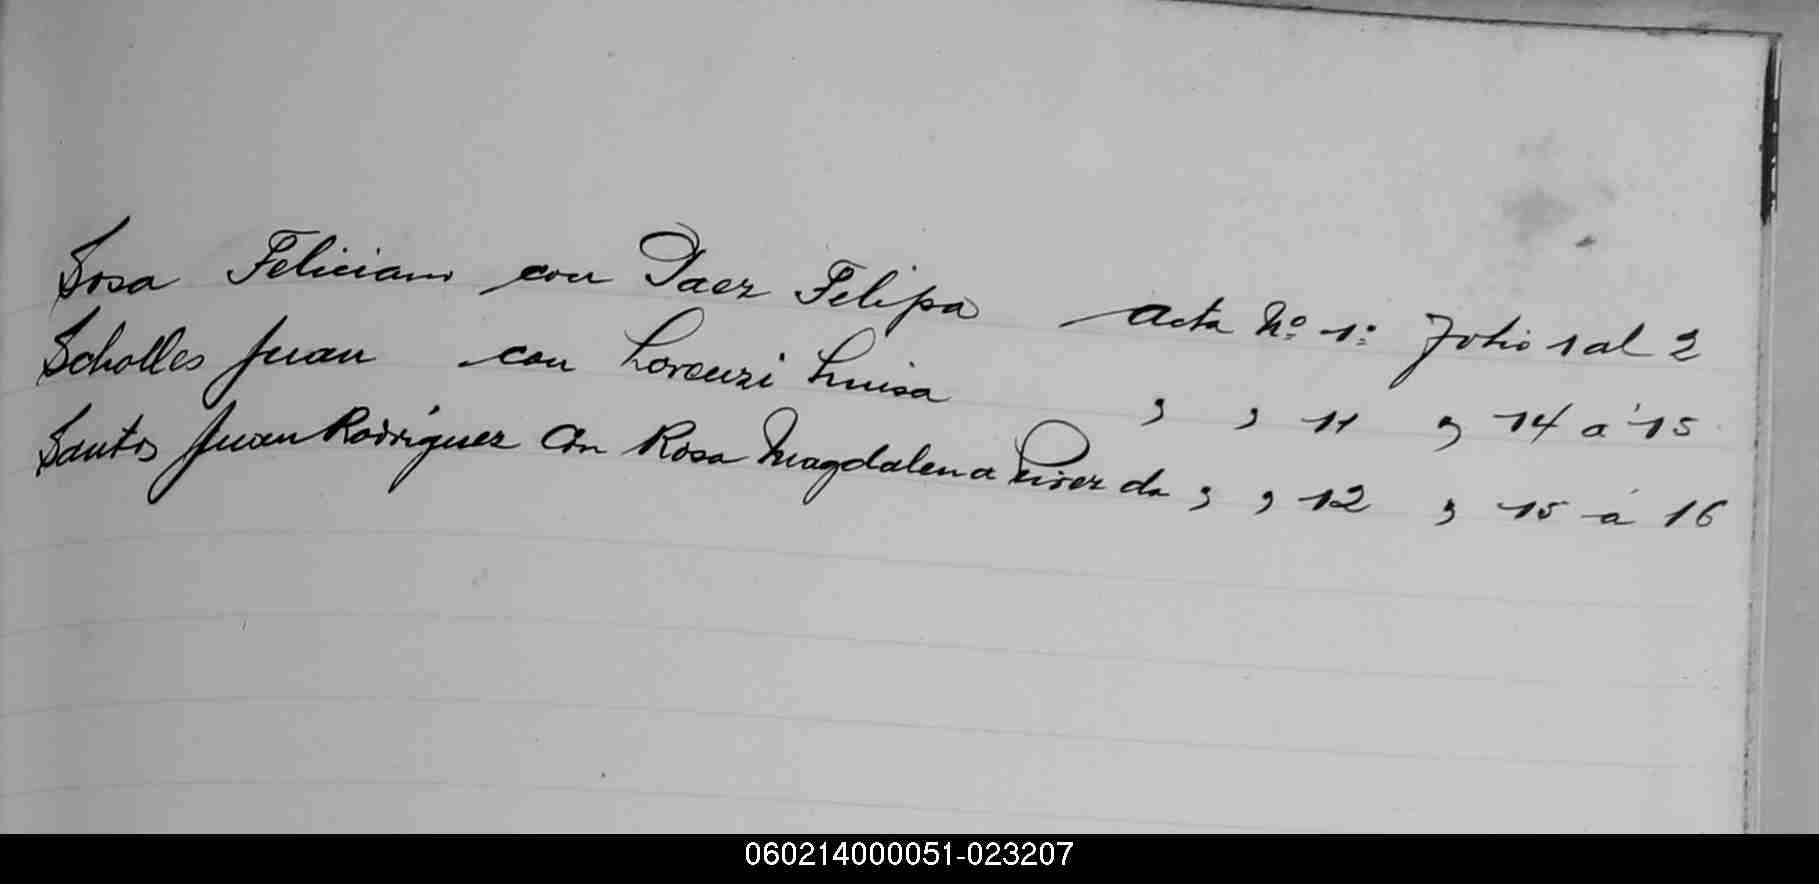 Sosa Feliciano con Paez Felipa acta Nº 1º Folio 1 al 2
Scholles Juan con Lorenzi Luisa , , 11 , 14 a 15
Santos Juan Rodriguez con Rosa Magdalena da , , 12 , 15 á 16
060214000051-023207